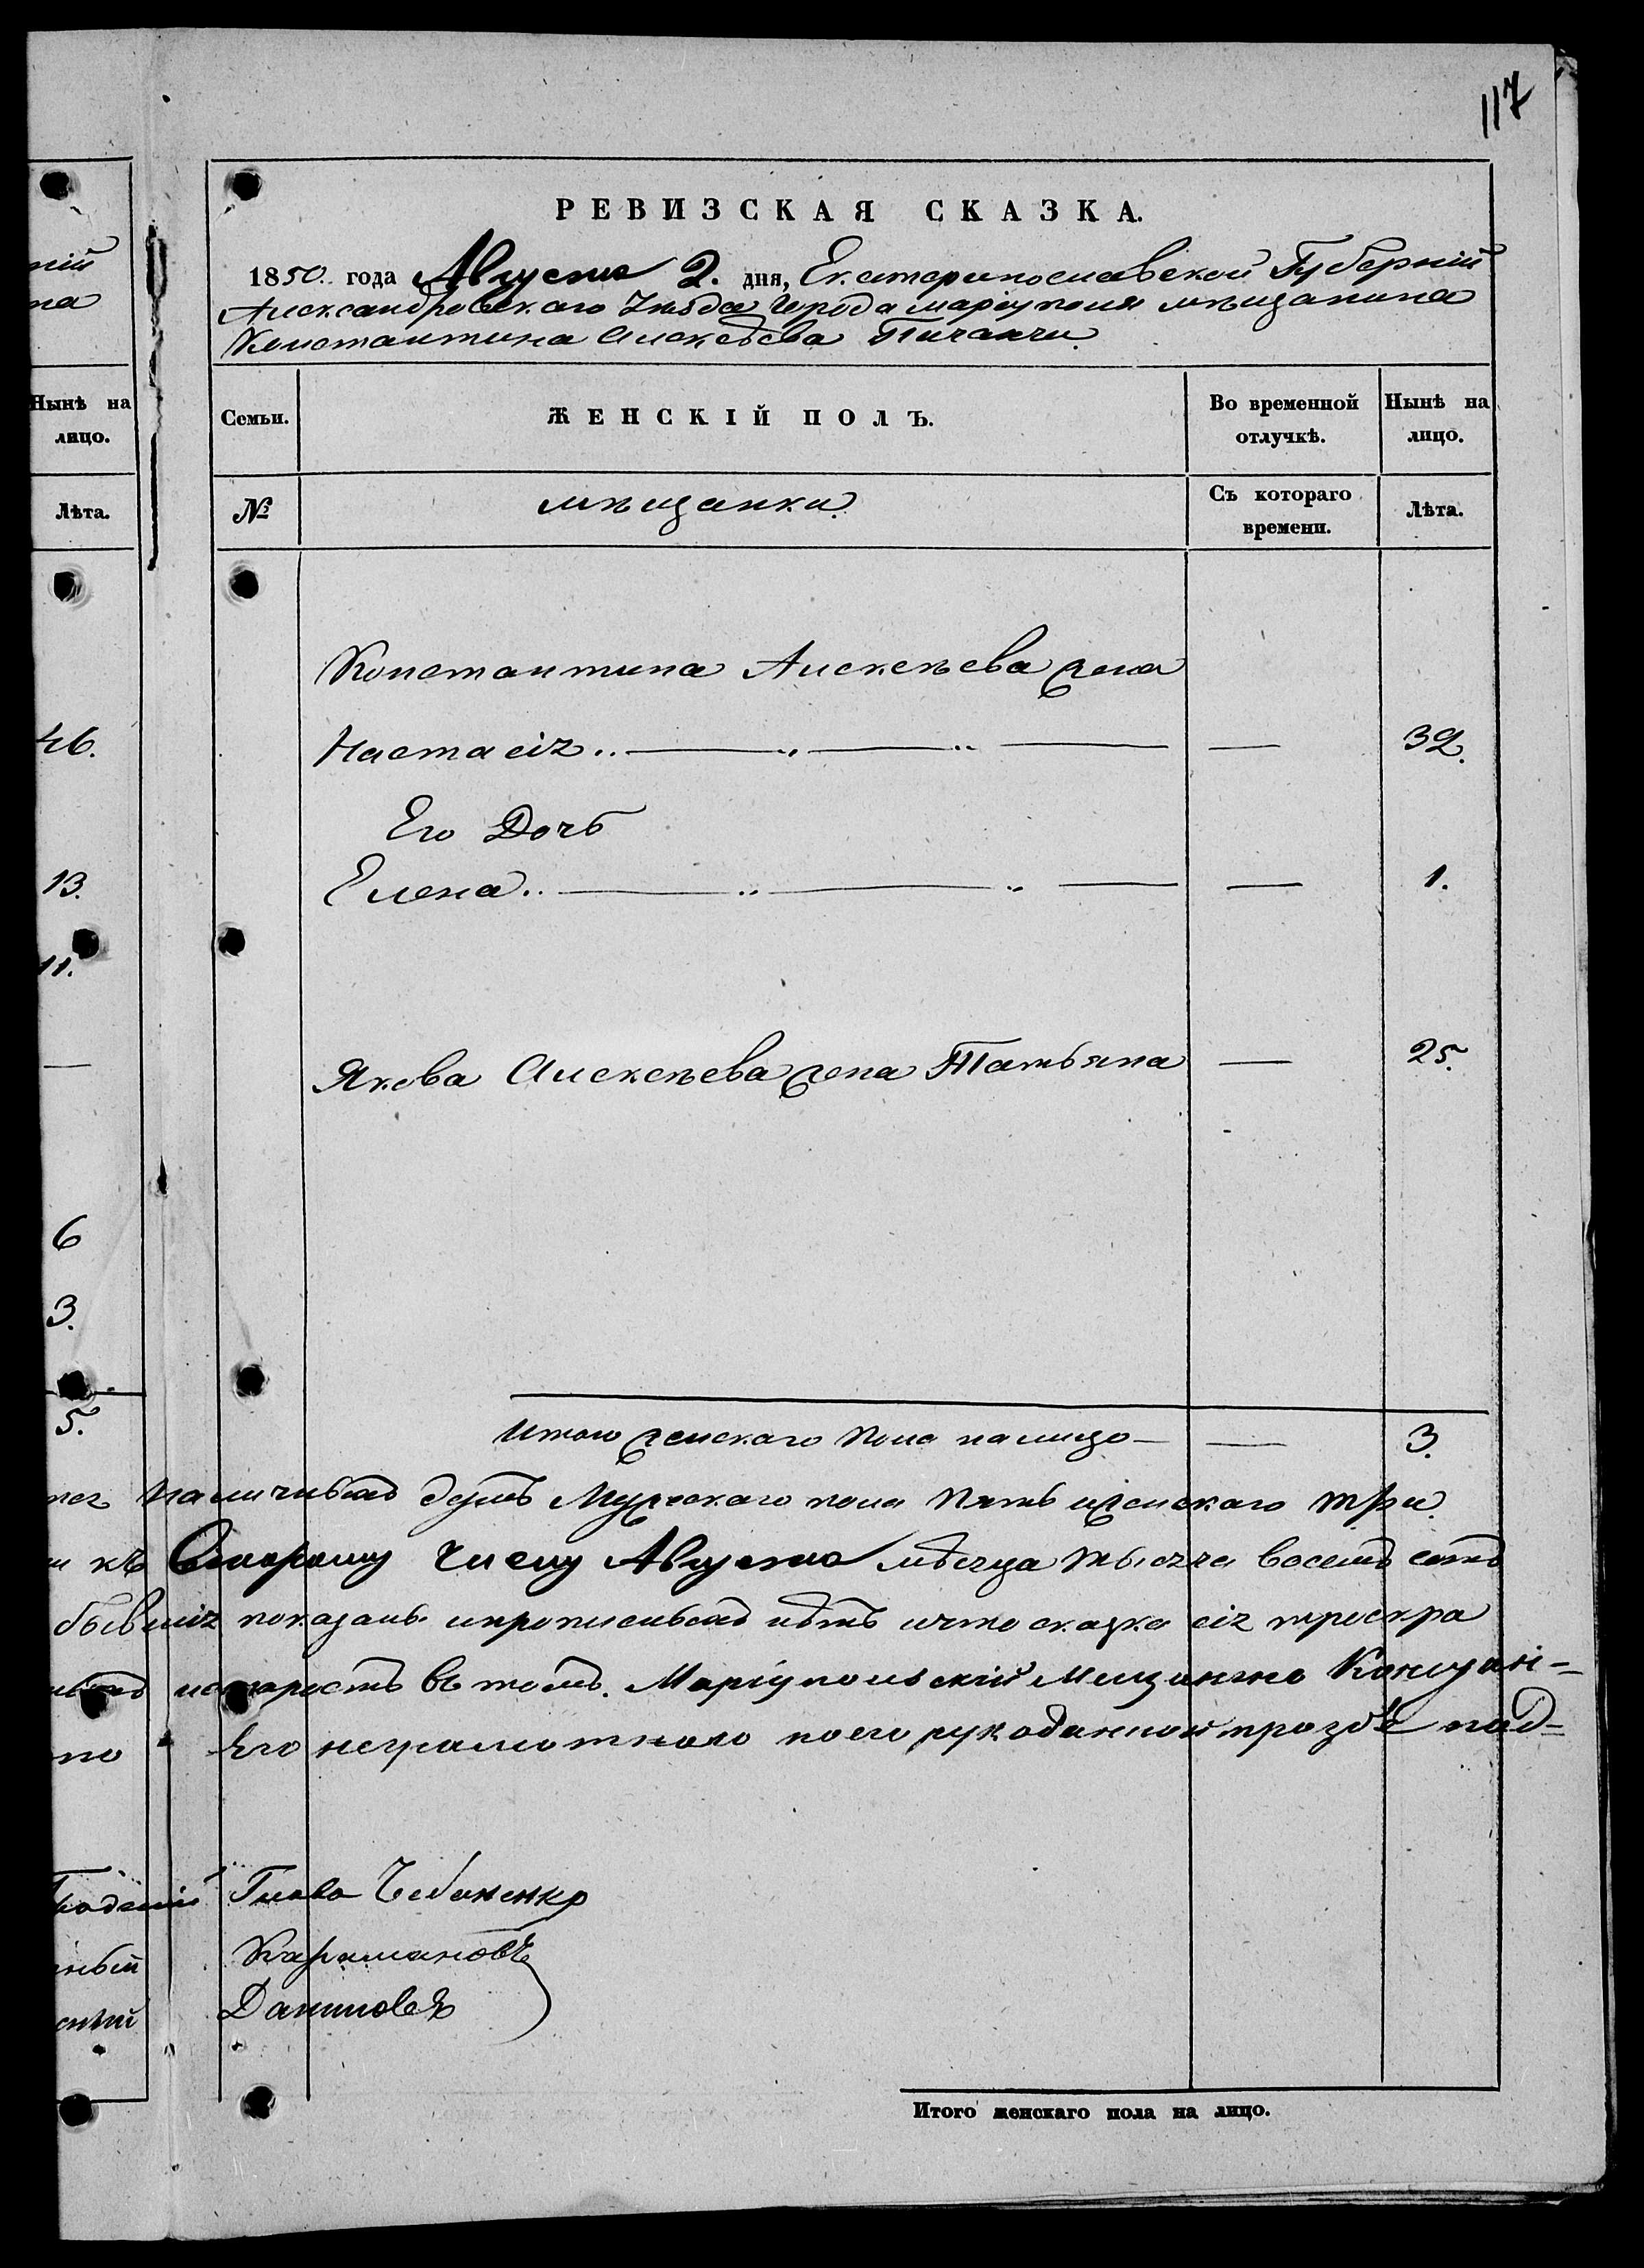 117
РЕВИЗСКАЯ СКАЗКА.
1850. года Августа 2. дня, Екатеринославской Губерніи
Александровскаго Уѣзда Города Маріуполя мѣщанина
Константина Алексѣева Пичахчи.
Семьи.
ЖЕНСКІЙ ПОЛЪ.
Во временной отлучкѣ.
Нынѣ на лицо.
№
мѣщанки.
Съ котораго времени.
Лѣта.
Константина Алексѣева жена
Настасія .. — „ — „ — — 32.
Его Дочь
Елена .. — „ — „ — — 1.
Якова Алексѣева жена Татьяна — 25.
Итого женскаго пола налицо — — 3.
Наличныхъ душъ Мужескаго пола Пять иженскаго три.
къ Второму Числу Августа мѣсяца тысяча восемь сотъ
бывшія показаны ипрописныхъ нѣтъ ичто сказка сія
въ томъ. Маріупольскій Мещанинъ
Его неграмотнаго поего рукоданной прозбѣ под-
Глава Чебаненко
Карамановъ
Даниловъ
Итого женскаго пола на лицо.
ній
на
Нынѣ на
лицо.
Лѣта.
46.
13.
11.
—
6
3.
5.